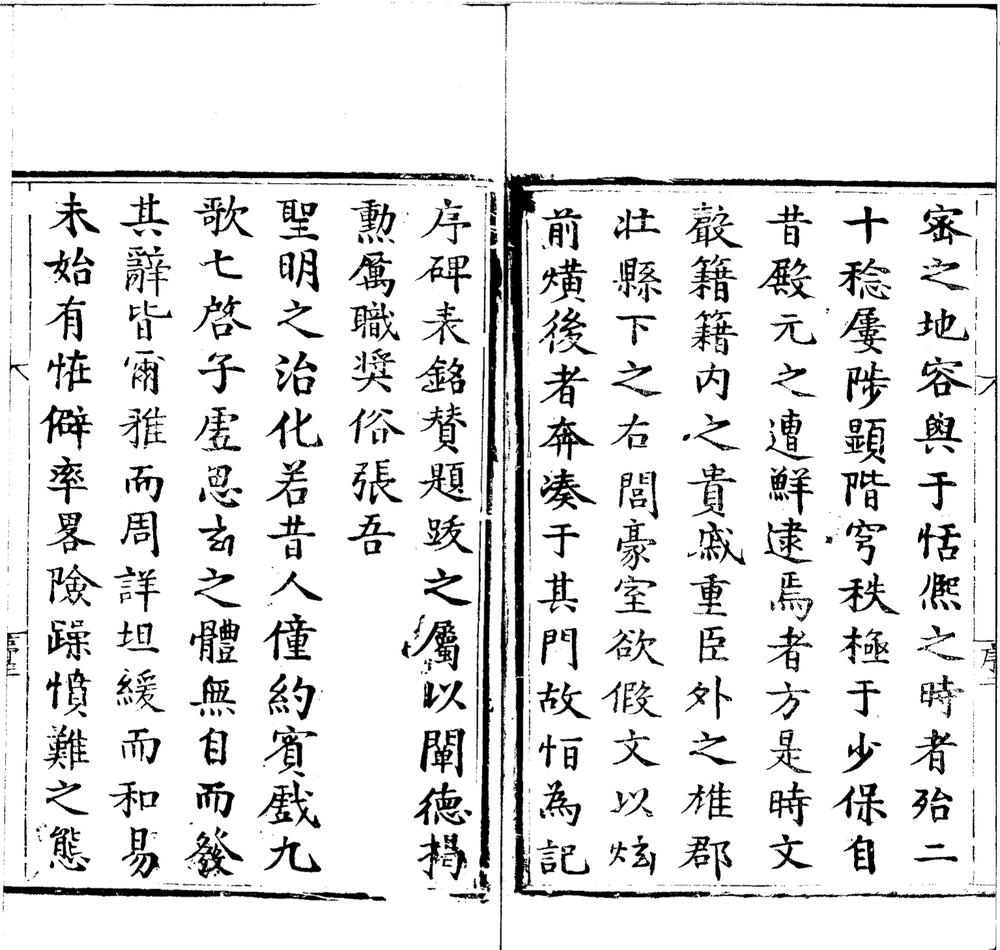 密之地容輿于恬熈之時者殆二
十稔屢陟顯階穹秩極于少保自
昔殿元之遭鮮逮焉者方是時文
嚴籍籍内之貴戚重臣外之雄郡
壯縣下之右閭豪室欲假文以炫
前熿後者奔湊于其門故怕為記
序碑表銘賛題跋之屬以闡德揭
勲厲職奬俗張吾
聖明之治化若昔人僮約賓戲九
歌七啓子虛思玄之體無自而發
其辭皆爾雅而周詳坦緩而和易
未始有怪僻率畧險躁憤難之態